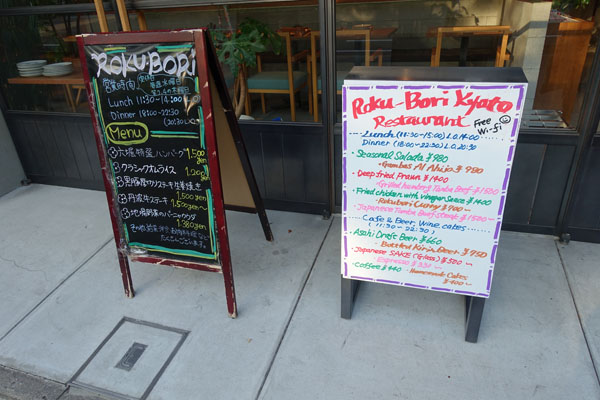 ROKU-BORI
営業時間
Lunch 11:30-14:00
Dinner 18:00-22:30
(20:30 L.O)
Menu
六堀特製ハンバーグ 1,500yen
クラシックオムライス 1,200
1,500yen
丹波牛ステーキ 1,500yen~
1,380yen
その他
たくさんございます。
Roku-Bori Kyoto
Restaurant Free Wi-fi
Lunch (11:30-15:00) L.O.14:00
Dinner (18:00~22:30) L.O.20:30
・Seasonal Salada ¥980
・Gambas Al Ahijo ¥980
・Deep fried Prawn ¥1400
・Grilled hamburg Tanba Beef ¥1500
・Fried chicken with Vinegar Sauce ¥1400
・Rokubori Curry ¥900~
・Japanese Tanba Beef Steak ¥1500~
Cafe & Beer, Wine cakes
(11:30~22:30)
・Asahi Draft Beer ¥660
・Bottled Kirin Beer ¥750
・Japanese SAKE (Glass) ¥500~
・Coffee ¥440
・Homemade Cakes
¥400~